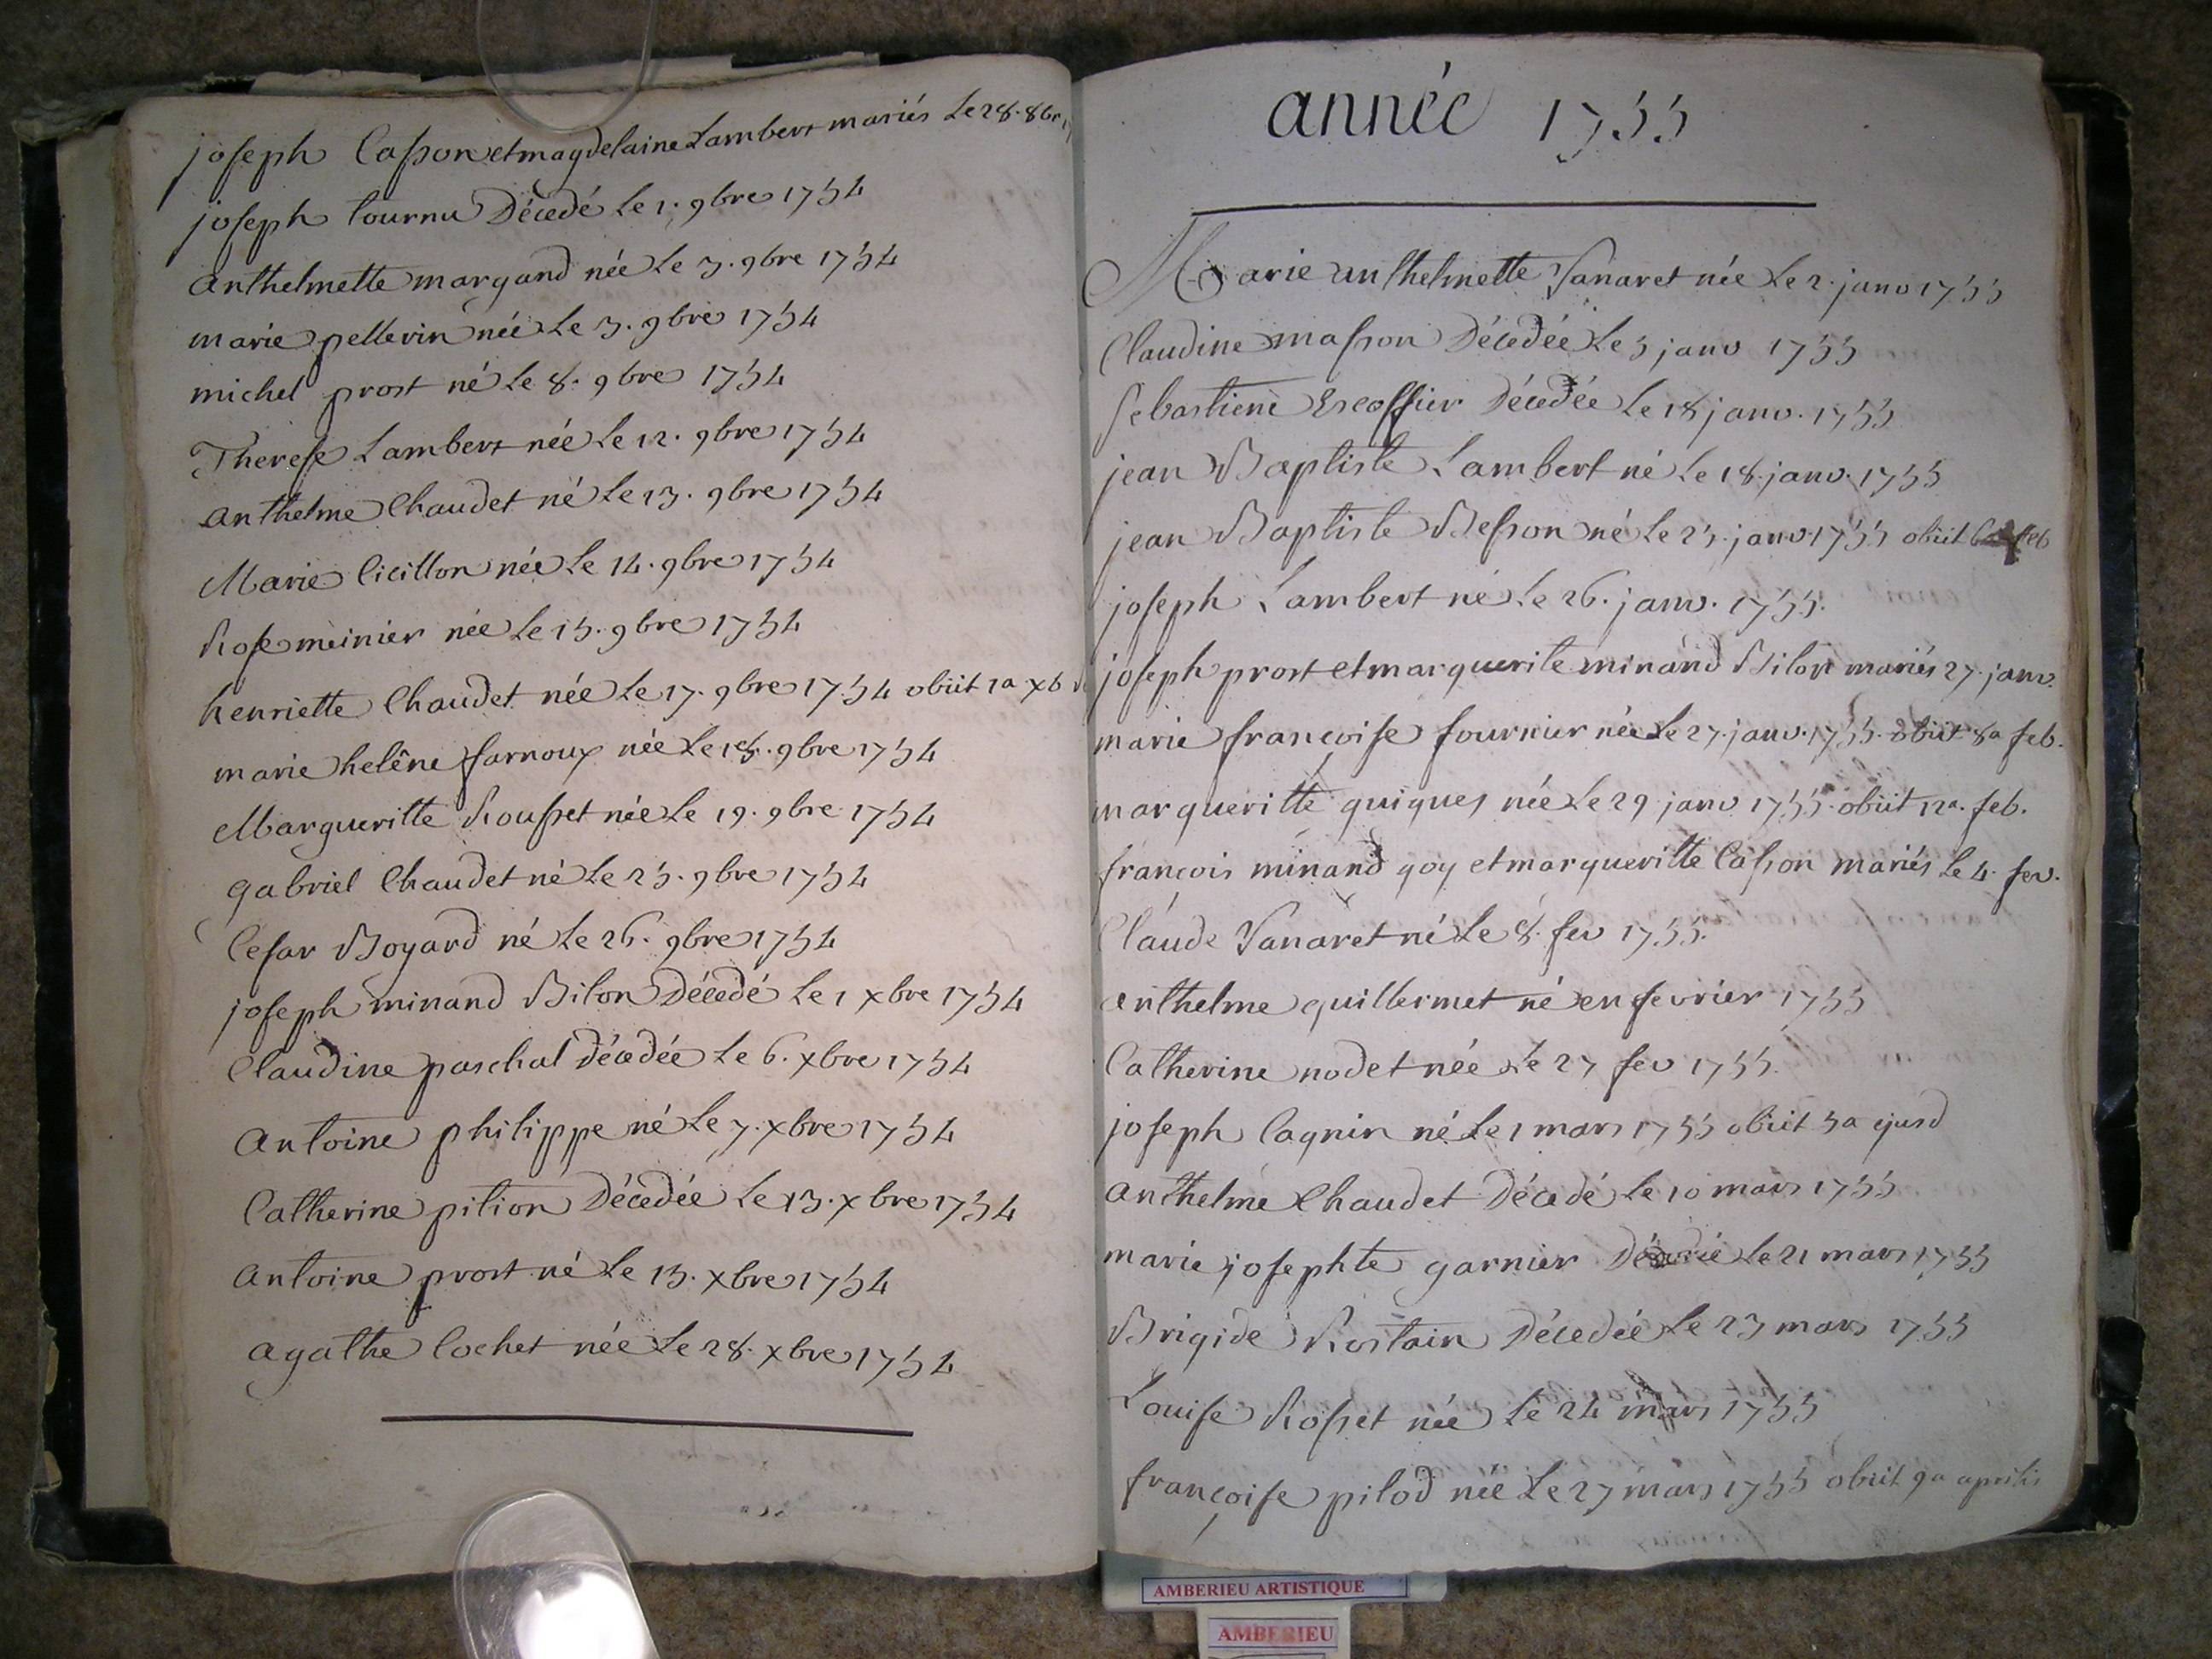 joseph Casson et magdelaine Lambert mariés Le 28. 8bre
joseph tournu Décedé Le 1. 9bre 1754
anthelmette margand née Le 3. 9bre 1754
marie pellerin née Le 3. 9bre 1754
michel prost né Le 8. 9bre 1754
Therese Lambert née Le 12. 9bre 1754
anthelme Chaudet né Le 13. 9bre 1754
Marie Cicillon née Le 14. 9bre 1754
Rose meinier née Le 15. 9bre 1754
henriette Chaudet née Le 17. 9bre 1754 obiit 1a xb
marie helêne farnoux née Le 18. 9bre 1754
Margueritte Rousset née Le 19. 9bre 1754
gabriel Chaudet né Le 25. 9bre 1754
Cesar Boyard né Le 26. 9bre 1754
joseph minand Bilon Décedé Le 1 xbre 1754
Claudine paschal décedée Le 6. xbre 1754
Antoine philippe né Le 7. xbre 1754
Catherine pition Décedée Le 13. xbre 1754
Antoine prost né Le 15. xbre 1754
agathe Cochet née Le 28. xbre 1754
année 1755
Marie anthelmette Vanaret née Le 2. janv 1755
Claudine masson Décedée Le 5 janv 1755
Sebastiene Escoffier Décedée Le 18 janv. 1755
jean Baptiste Lambert né Le 18. janv. 1755
jean Baptiste Besson né Le 25. janv. 1755 obiit feb
joseph Lambert né Le 26. janv. 1755.
joseph prost et marguerite minand Bilon mariés 27. janv.
marie françoise fournier née Le 27. janv. 1755. obiit 8a feb.
margueritte guigues née Le 29 janv 1755. obiit 12a. feb.
françois minand goy et margueritte Casson mariés Le 4. fev.
Claude Vanaret né Le 8. fev 1755.
anthelme guillermet né en fevrier 1755
Catherine nodet née Le 27 fev 1755.
joseph Cagnin né Le 1 mars 1755 obiit 5a ejusd
anthelme Chaudet Décedé Le 10 mars 1755
marie josephte garnier Décedée Le 21 mars 1755
Brigide Rostain Décedée Le 23 mars 1755
Louise Rosset née Le 24 mars 1755
françoise pilod née Le 27 mars 1755 obiit 9a aprilis
AMBERIEU ARTISTIQUE
AMBERIEU